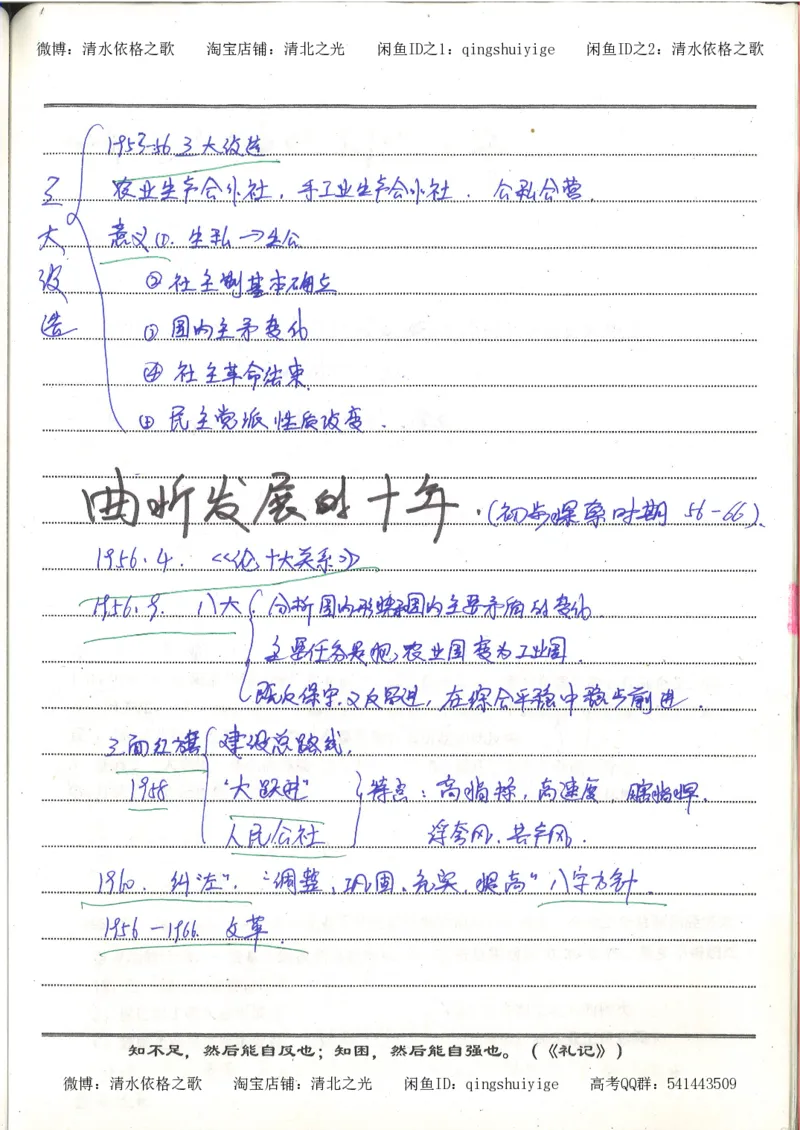 微博：清水依格之歌 淘宝店铺：清北之光 闲鱼ID之1：qingshuiyige 闲鱼ID之2：清水依格之歌
三大改造
1953-56 三大改造
农业生产合作社，手工业生产合作社．公私合营．
意义①．生私→生公
②社主制基本确立
③国内主矛变化
④社主革命结束．
④民主党派性质改变．
曲折发展的十年．(初步探索时期 56-66)．
1956.4．《论十大关系》
1956.9．八大 分析国内形势和国内主要矛盾的变化
主要任务是把农业国变为工业国．
既反保守，又反冒进，在综合平衡中稳步前进．
三面红旗 建设总路线，
1958 "大跃进" 特点：高指标，高速度，瞎指挥．
人民公社 浮夸风，共产风．
1960．纠"左"．"调整、巩固、充实、提高"八字方针．
1956-1966．文革．
知不足，然后能自反也；知困，然后能自强也。（《礼记》）
微博：清水依格之歌 淘宝店铺：清北之光 闲鱼ID：qingshuiyige 高考QQ群：541443509